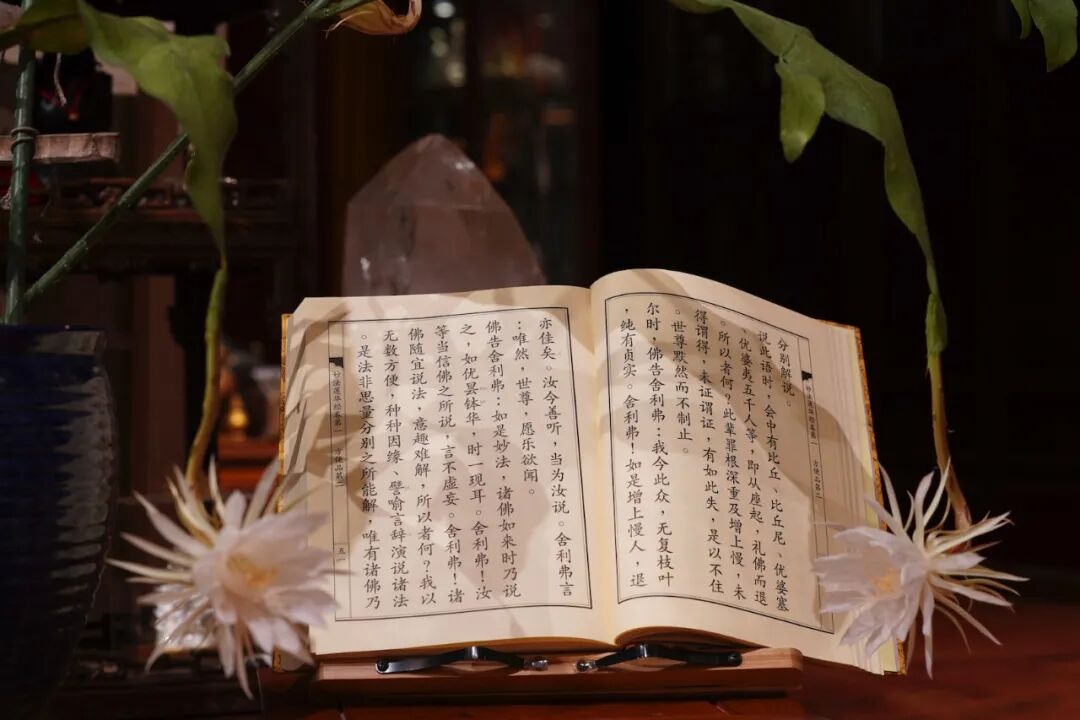 妙法莲华经卷第一　方便品第二
分别解说。
说此语时，会中有比丘、比丘尼、优婆塞
、优婆夷五千人等，即从座起，礼佛而退
。所以者何？此辈罪根深重及增上慢，未
得谓得，未证谓证，有如此失，是以不住
。世尊默然而不制止。
尔时，佛告舍利弗：我今此众，无复枝叶
，纯有贞实。舍利弗！如是增上慢人，退
亦佳矣。汝今善听，当为汝说。舍利弗言
：唯然，世尊，愿乐欲闻。
佛告舍利弗：如是妙法，诸佛如来时乃说
之，如优昙钵华，时一现耳。舍利弗！汝
等当信佛之所说，言不虚妄。舍利弗！诸
佛随宜说法，意趣难解，所以者何？我以
无数方便，种种因缘、譬喻言辞演说诸法
。是法非思量分别之所能解，唯有诸佛乃
妙法莲华经卷第一　方便品第二
五一